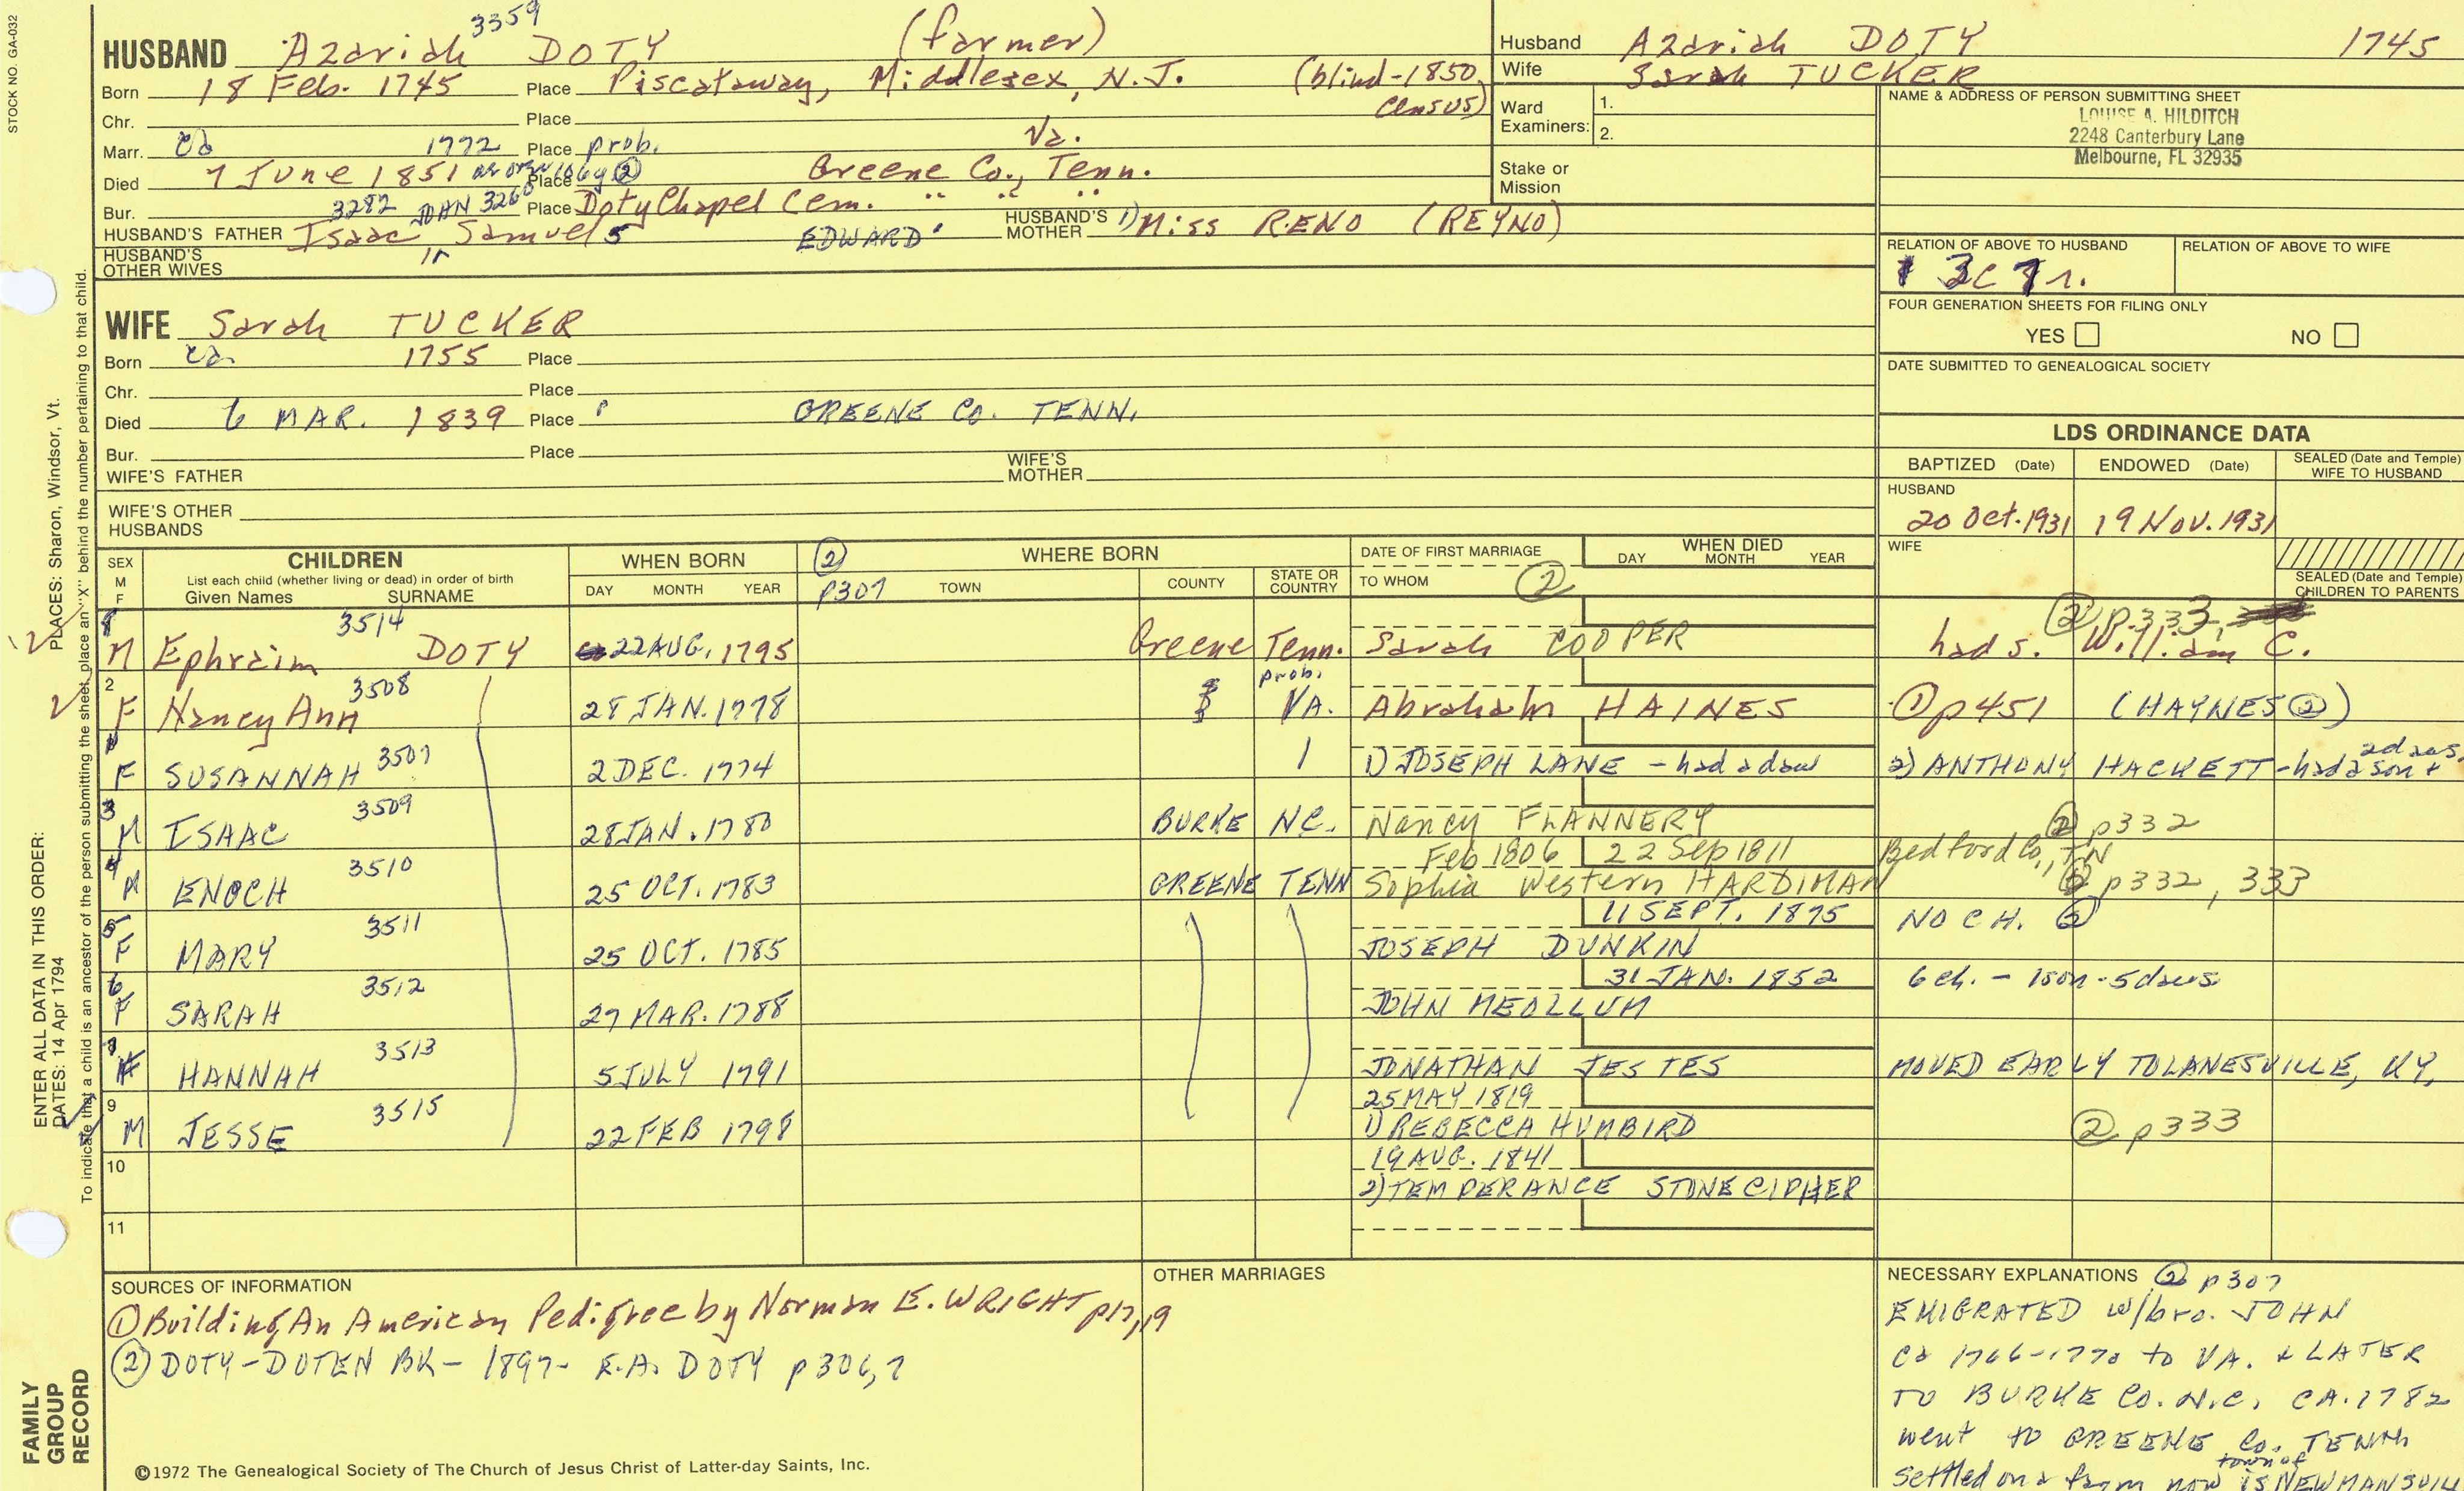 STOCK NO. GA-032
3359
HUSBAND Azariah DOTY (farmer)
Born 18 Feb. 1745 Place Piscataway, Middlesex, N.J. (blind-1850 Census)
Chr. Place
Marr. ca 1772 Place prob. Va.
Died 7 June 1851 Place Greene Co., Tenn.
Bur. Place Doty Chapel Cem. " " "
3282 JOHN 3268
HUSBAND'S FATHER Isaac, Samuel EDWARD HUSBAND'S MOTHER 1) Miss RENO (REYNO)
HUSBAND'S OTHER WIVES
WIFE Sarah TUCKER
Born ca. 1755 Place
Chr. Place
Died 6 MAR. 1839 Place GREENE CO. TENN.
Bur. Place
WIFE'S FATHER WIFE'S MOTHER
WIFE'S OTHER HUSBANDS
Husband Azariah DOTY 1745
Wife Sarah TUCKER
Ward Examiners: 1. 2.
Stake or Mission
NAME & ADDRESS OF PERSON SUBMITTING SHEET
LOUISE A. HILDITCH
2248 Canterbury Lane
Melbourne, FL 32935
RELATION OF ABOVE TO HUSBAND RELATION OF ABOVE TO WIFE
FOUR GENERATION SHEETS FOR FILING ONLY
YES NO
DATE SUBMITTED TO GENEALOGICAL SOCIETY
LDS ORDINANCE DATA
BAPTIZED (Date) ENDOWED (Date) SEALED (Date and Temple) WIFE TO HUSBAND
HUSBAND
20 Oct. 1931 19 Nov. 1931
WIFE
SEALED (Date and Temple) CHILDREN TO PARENTS
SEX M F CHILDREN WHEN BORN ② WHERE BORN DATE OF FIRST MARRIAGE WHEN DIED
List each child (whether living or dead) in order of birth
Given Names SURNAME DAY MONTH YEAR P307 TOWN COUNTY STATE OR COUNTRY TO WHOM ② DAY MONTH YEAR
8 3514 ② p.333,
M Ephraim DOTY 22 AUG. 1795 Greene Tenn. Sarah COOPER had s. William C.
2 3508 prob.
F Nancy Ann 28 JAN. 1778 VA. Abraham HAINES ① p451 (HAYNES ②)
F SUSANNAH 3507 2 DEC. 1774 1) JOSEPH LANE - had a dau 2) ANTHONY HACKETT - had a son + 2 daus.
3 3509
M ISAAC 28 JAN. 1780 BURKE NC. Nancy FLANNERY ② p332
4 3510 Feb 1806 22 Sep 1811 Bedford Co., TN
M ENOCH 25 OCT. 1783 GREENE TENN Sophia Western HARDIMAN ② p332, 333
5 3511 11 SEPT. 1875 NO CH. ②
F MARY 25 OCT. 1785 JOSEPH DUNKIN
6 3512 31 JAN. 1852 6 ch. - 1 son - 5 daus
F SARAH 27 MAR. 1788 JOHN MEDLLUM
3513
HANNAH 5 JULY 1791 JONATHAN JESTES MOVED EARLY TO LANESVILLE, KY.
9 3515 25 MAY 1819
M JESSE 22 FEB 1798 1) REBECCA HUMBIRD ② p333
10 19 AUG. 1841
2) TEMPERANCE STONECIPHER
11
SOURCES OF INFORMATION
① Building An American Pedigree by Norman E. WRIGHT p17,19
② DOTY-DOTEN BK - 1897 - E.A. DOTY p 306,7
OTHER MARRIAGES
NECESSARY EXPLANATIONS ② p307
EMIGRATED w/bro. JOHN
ca 1766-1770 to VA. & LATER
TO BURKE CO. N.C. CA. 1782
went to GREENE Co. TENN
town of
settled on a farm now is
©1972 The Genealogical Society of The Church of Jesus Christ of Latter-day Saints, Inc.
ENTER ALL DATA IN THIS ORDER:
DATES: 14 Apr 1794 PLACES: Sharon, Windsor, Vt.
To indicate that a child is an ancestor of the person submitting the sheet, place an "X" behind the number pertaining to that child.
FAMILY
GROUP
RECORD